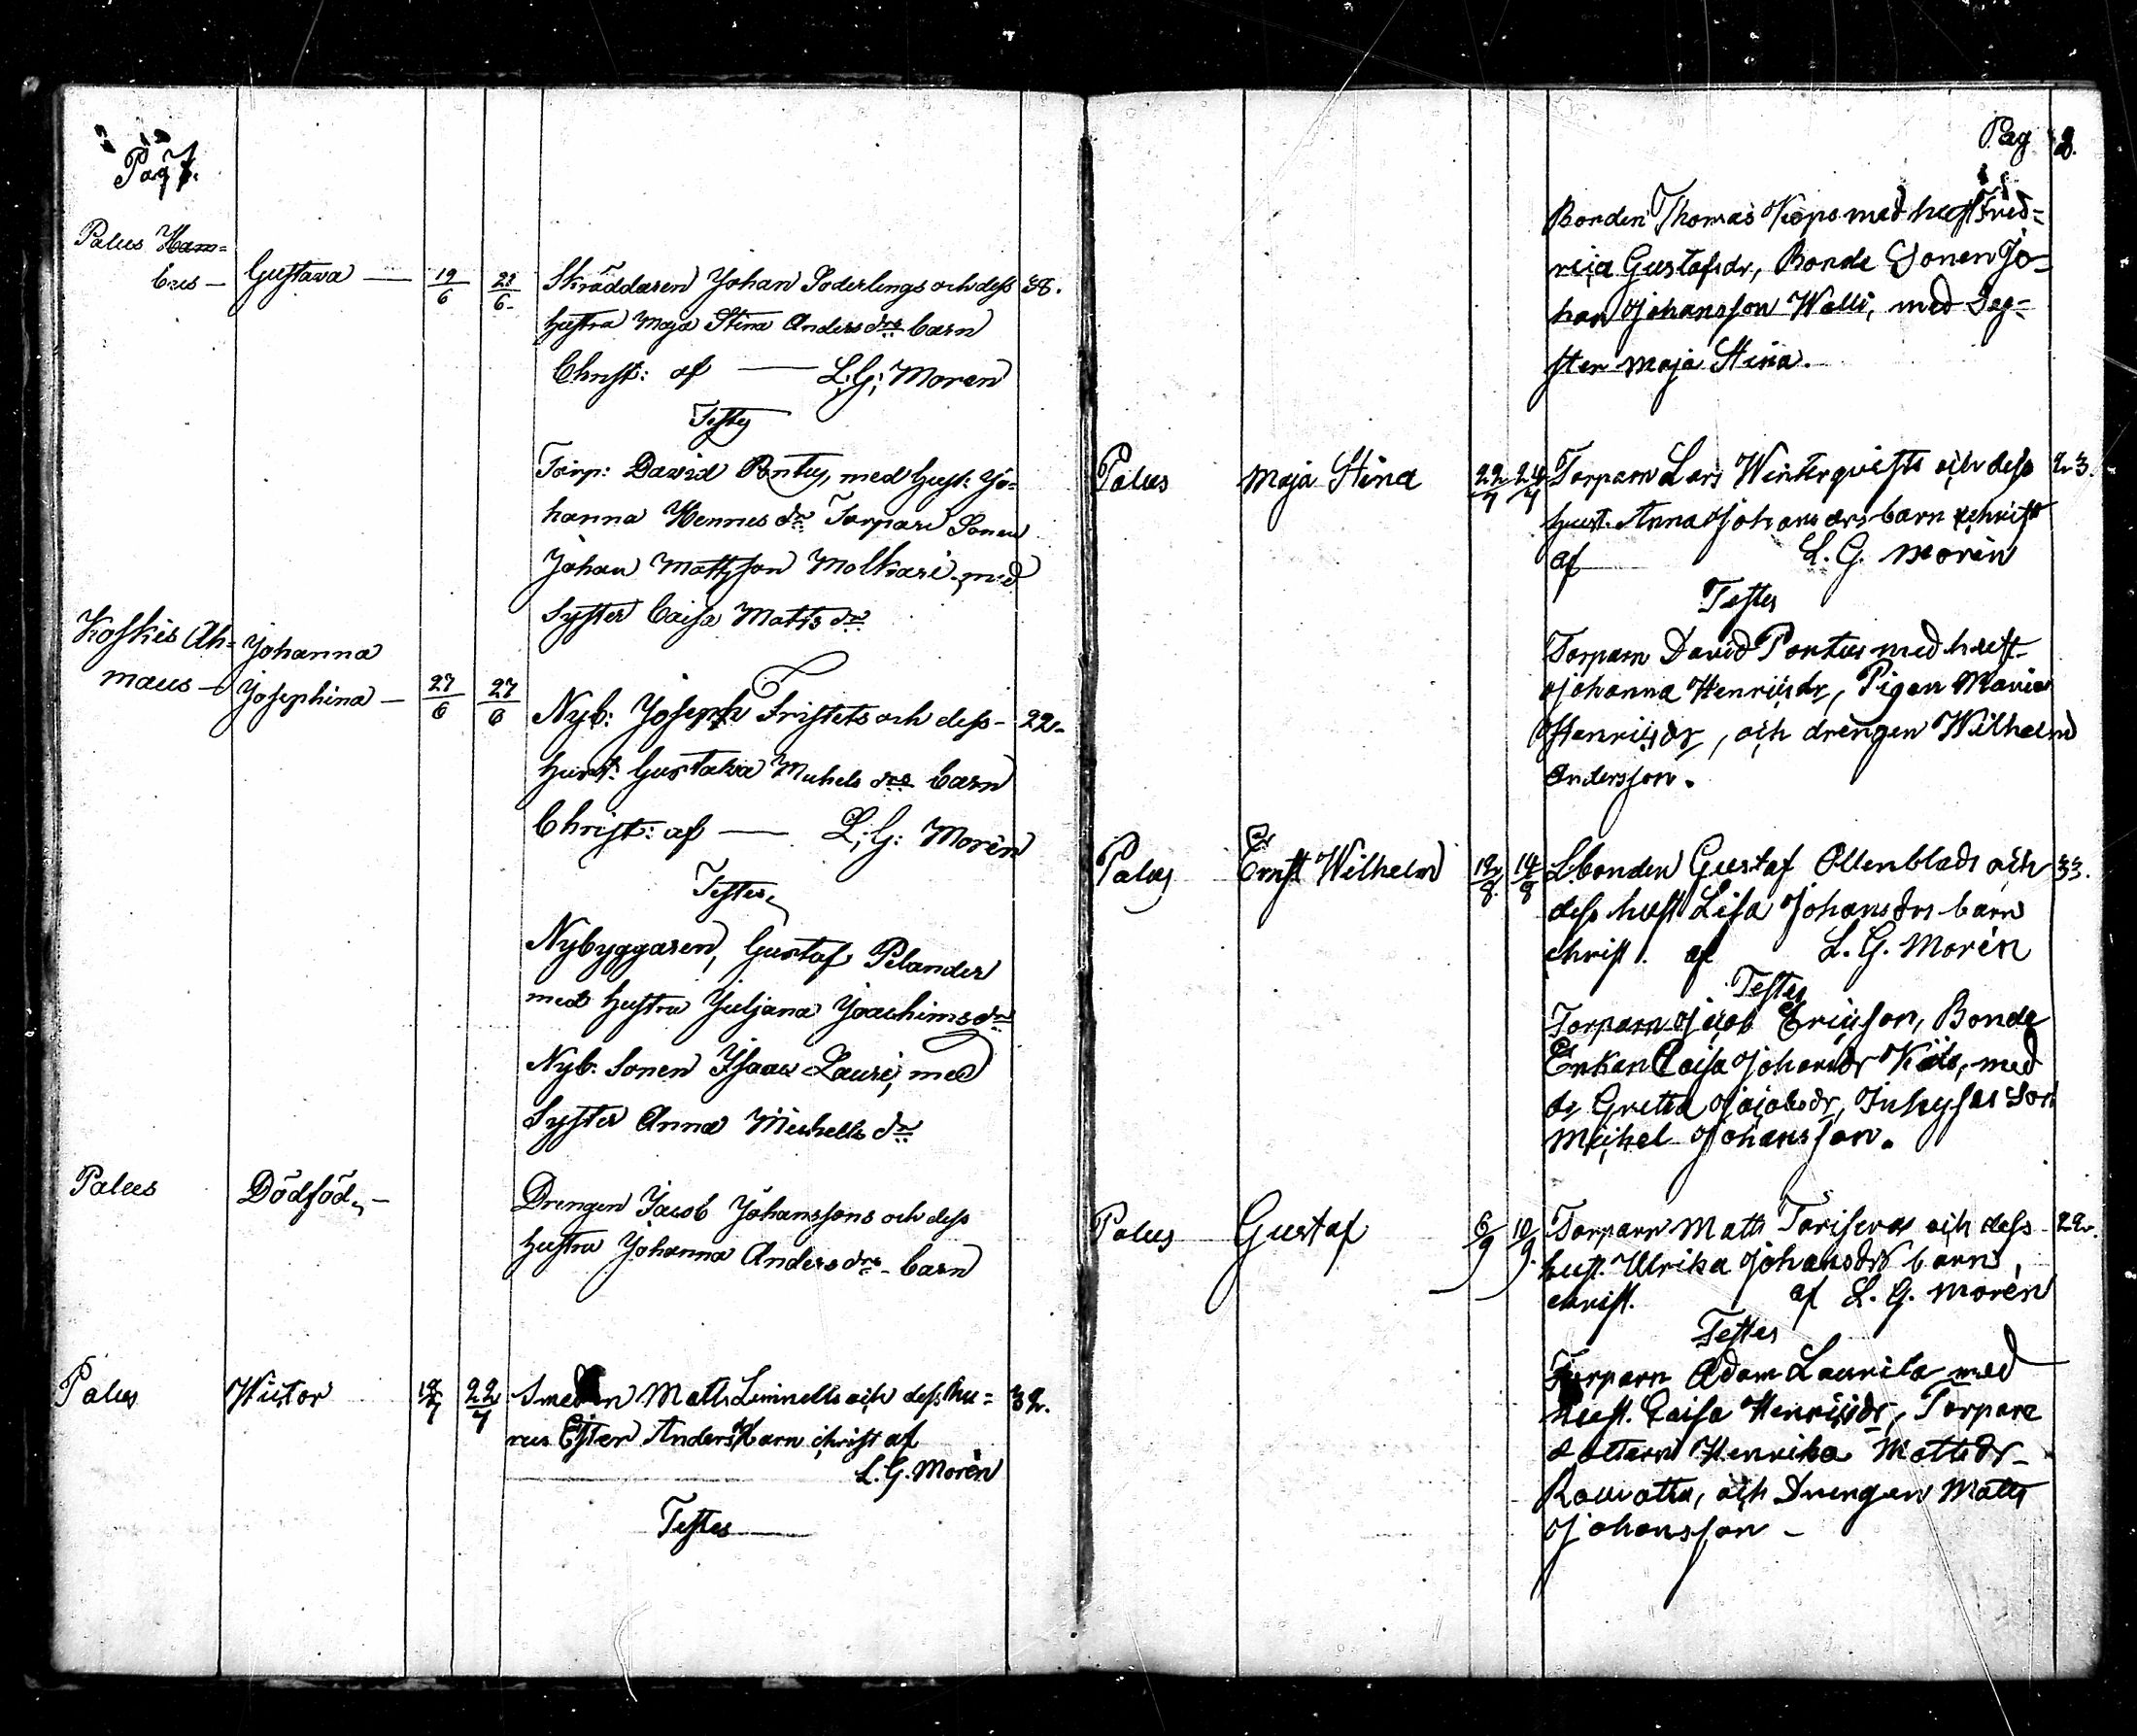 Pag 7.
Palus Ham=
bus — Gustava — 19/6 23/6 Skräddaren Johan Söderlings och dess 38.
hustra Maja Stina Anders drs barn
Christ: af — L: G: Moren
Testes
Torp: David Pontus, med hust: Jo=
hanna Hennes dr Torpare Sonen
Johan Mattsson Molkari med
Syster Caisa Matts dr
Koskis Ah= Johanna
maus — Josephina — 27/6 27/6 Nyb: Joseph Fristets och dess 22.
hust: Gustava Michels drs barn
Christ: af — L; G: Morén
Testes,
Nybyggaren, Gustaf Pelander
med hustru Juljana Joachims dr
Nyb. Sonen Isaac Lauri, med
Syster Anna Michells dr
Palus Dödföd. — Drengen Jacob Johanssons och dess
hustru Johanna Anders drs barn
Palus Victor 18/7 22/7 Smeden Matts Linnells och dess hu= 32.
rus Ester Anders barn christ af
L. G. Morén
Testes
Pag 8.
Bonden Thomas Kops med hust Fred=
rica Gustafsdr, Bonde Sonen Jo=
han Johansson Walli, med Sys=
ster Maja Stina.
Palus Maja Stina 22/7 24/7 Torparn Lars Winterqvists och dess 23.
hust. Anna Johans drs barn christ
af L. G. Morén
Testes
Torparn David Pontus med hust
Johanna Henricsdr, Pigan Maria
Henricsdr, och drengen Wilhelm
Andersson.
Palus Ernst Wilhelm 12/8 14/8 Lbonden Gustaf Ollenblads och 33.
dess hust Lisa Johans drs barn
christ. af L. G. Morén
Testes
Torparn Jacob Ericsson, Bonde
Enkan Caisa Johansdr, med
Gretha Jacobsdr, Inhyses Son
Michel Johansson.
Palus Gustaf 6/9 10/9 Torparn Matts Toriseva och dess 22.
hust. Ulrika Johansdrs barn,
christ. af L. G. Morén
Testes
Torparn Adam Laurila med
hust. Caisa Henricsdr, Torpare
dottern Henrika Mattsdr
Rauatta, och Drengen Matts
Johansson —